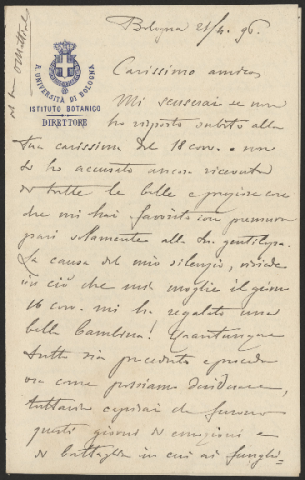 Bologna 21/4. 96.
R. UNIVERSITÀ DI BOLOGNA
ISTITUTO BOTANICO
DIRETTORE
Carissimo amico,
Mi scuserai se non
ho risposto subito alla
tua carissima del 18 corr. e non
ti ho accusato ancora ricevuta
di tutte le belle e preziose cose
che mi hai favorito con premura
pari solamente alla tua gentilezza.
La causa del mio silenzio, risiede
in ciò che mia moglie il giorno
16 corr. mi ha regalato una
bella bambina! Quantunque
tutto sia proceduto e proceda
ora come possiamo desiderare,
tuttavia capirai che furono
questi giorni di emozioni e
di battaglia in cui ai funghi